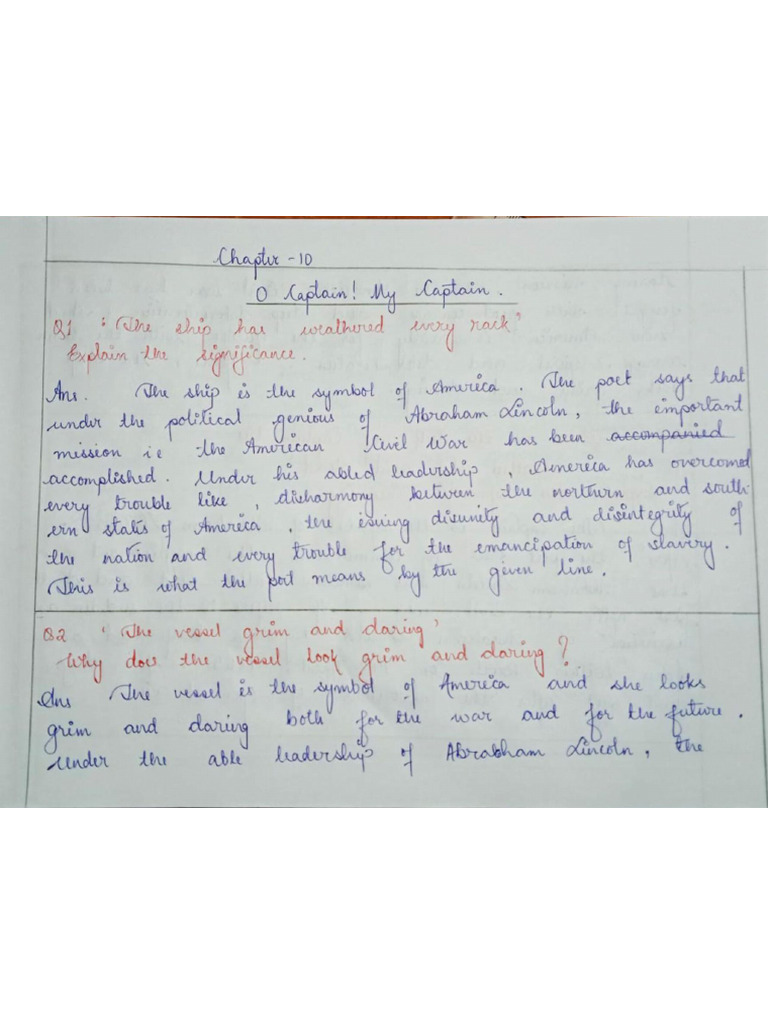 Chapter -10
O Captain! My Captain.
Q1 "The ship has weathered every rack"
Explain the significance.
Ans. The ship is the symbol of America. The poet says that
under the political genious of Abraham Lincoln, the important
mission ie the American Civil War has been accompanied
accomplished. Under his abled leadership, Amereica has overcomed
every trouble like, disharmony between the northern and south-
ern states of America, the issuing disunity and disintegrity of
the nation and every trouble for the emancipation of slavery.
This is what the poet means by the given line.
Q2 'The vessel grim and daring'
-Why does the vessel look grim and daring?
Ans The vessel is the symbol of America and she looks
grim and daring both for the war and for the future.
Under the able leadership of Abrabham Lincoln, the